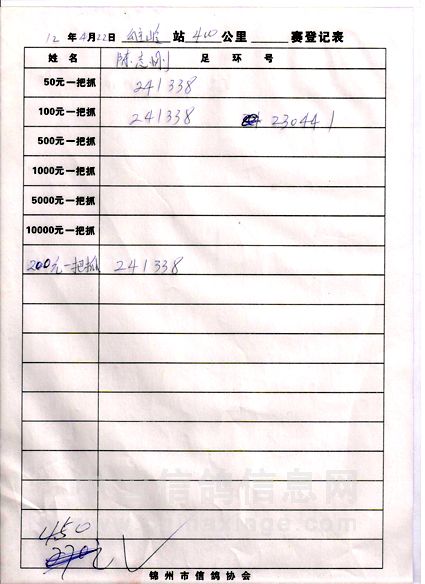 12年4月22日 站400公里 赛登记表
姓名 陈志刚 足环号
50元一把抓 241338
100元一把抓 241338 230441
500元一把抓
1000元一把抓
5000元一把抓
10000元一把抓
200元一把抓 241338
信鸽信息网
450元
锦州市信鸽协会